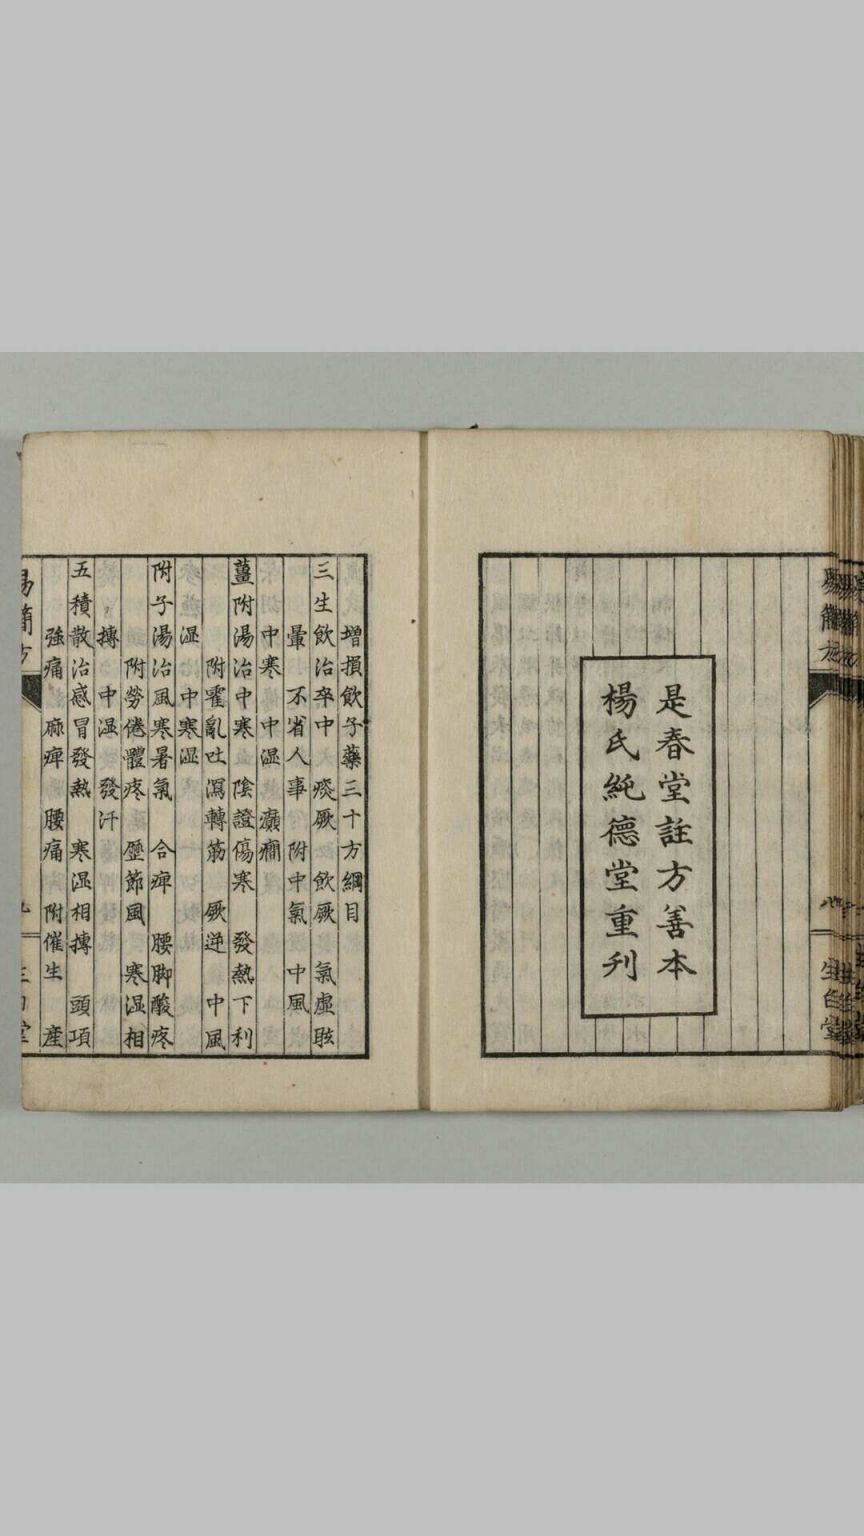 是春堂註方善本
楊氏純德堂重刋
增損飲子藥三十方綱目
三生飲治卒中　痰厥　飲厥　氣虛眩
暈　不省人事　附中氣　中風
中寒　中濕　癲癎
薑附湯治中寒　陰證傷寒　發熱下利
附霍亂吐瀉轉筋　厥逆　中風
濕　中寒濕
附子湯治風寒暑氣　合痺　腰脚酸疼
附勞倦體疼　歷節風　寒濕相
搏　中濕　發汗
五積散治感冒發熱　寒濕相搏　頭項
強痛　麻痺　腰痛　附催生　產
易簡方